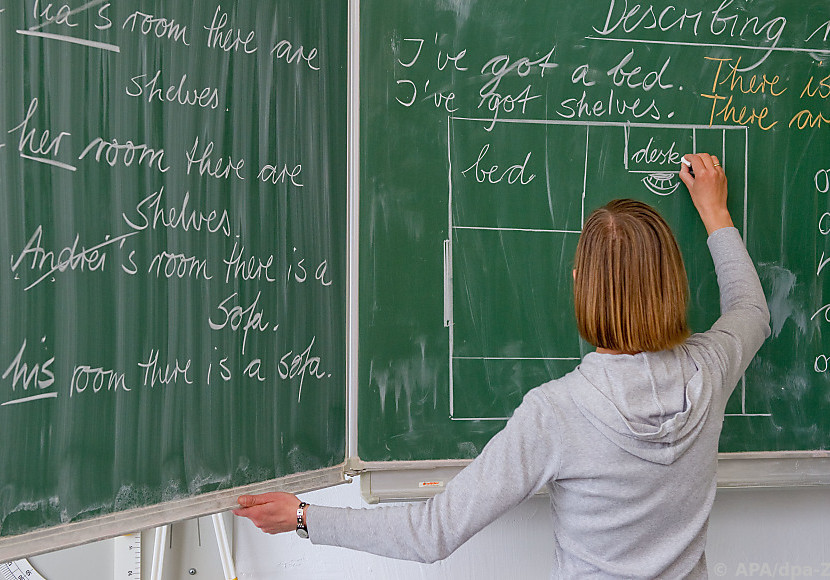 room there are
shelves.
her room there are
shelves.
Andrei's room there is a
sofa.
his room there is a sofa.
Describing
I've got a bed.
I've got shelves.
There is
There ar
bed
desk
© APA/dpa-Z